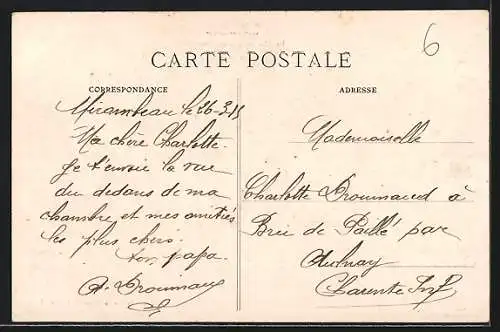 6
CARTE POSTALE
CORRESPONDANCE
ADRESSE
Mirambeau le 26-3-15
Ma chère Charlotte.
Je t'envoie la vue
du dedans de ma
chambre et mes amitiés
les plus chers.
ton papa.
A. Drouinaud
Mademoiselle
Charlotte Drouinaud à
Brie de Paillé par
Aulnay
Charente Inf